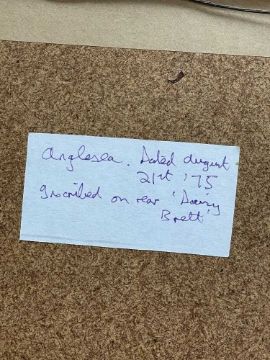 Anglesea. Dated August
21st '75
Inscribed on rear 'Dairy
Brett'